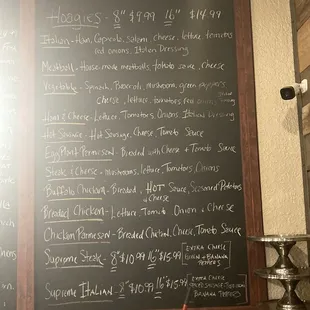 Hoogies - 8" $9.99 16" $14.99
Italian - Ham, Capicola, salami, cheese, lettuce, tomatoes
red onions, Italian Dressing
Meatball - House-made meatballs, tomato sauce, cheese
Vegetable - Spinach, Broccoli, mushroom, green peppers
cheese, lettuce, tomatoes, red onion,
Ham & Cheese - Lettuce, Tomato, Onions, Italian Dressing
Hot Sausage - Hot Sausage, Cheese, Tomato Sauce
Egg Plant Parmesan - Breaded with Cheese + Tomato Sauce
Steak & Cheese + mushrooms, lettuce, Tomatoes, Onions
Buffalo Chicken - Breaded, HOT Sauce, Seasoned Potatoes
+ Cheese
Breaded Chicken - Lettuce, Tomato Onion & Cheese
Chicken Parmesan - Breaded Chicken, Cheese, Tomato Sauce
Supreme Steak - 8" $10.99 16" $15.99 [EXTRA CHEESE
+ BANANA
PEPPERS]
Supreme ITALIAN - 8" $10.99 16" $15.99 [EXTRA CHEESE
BANANA PEPPERS]